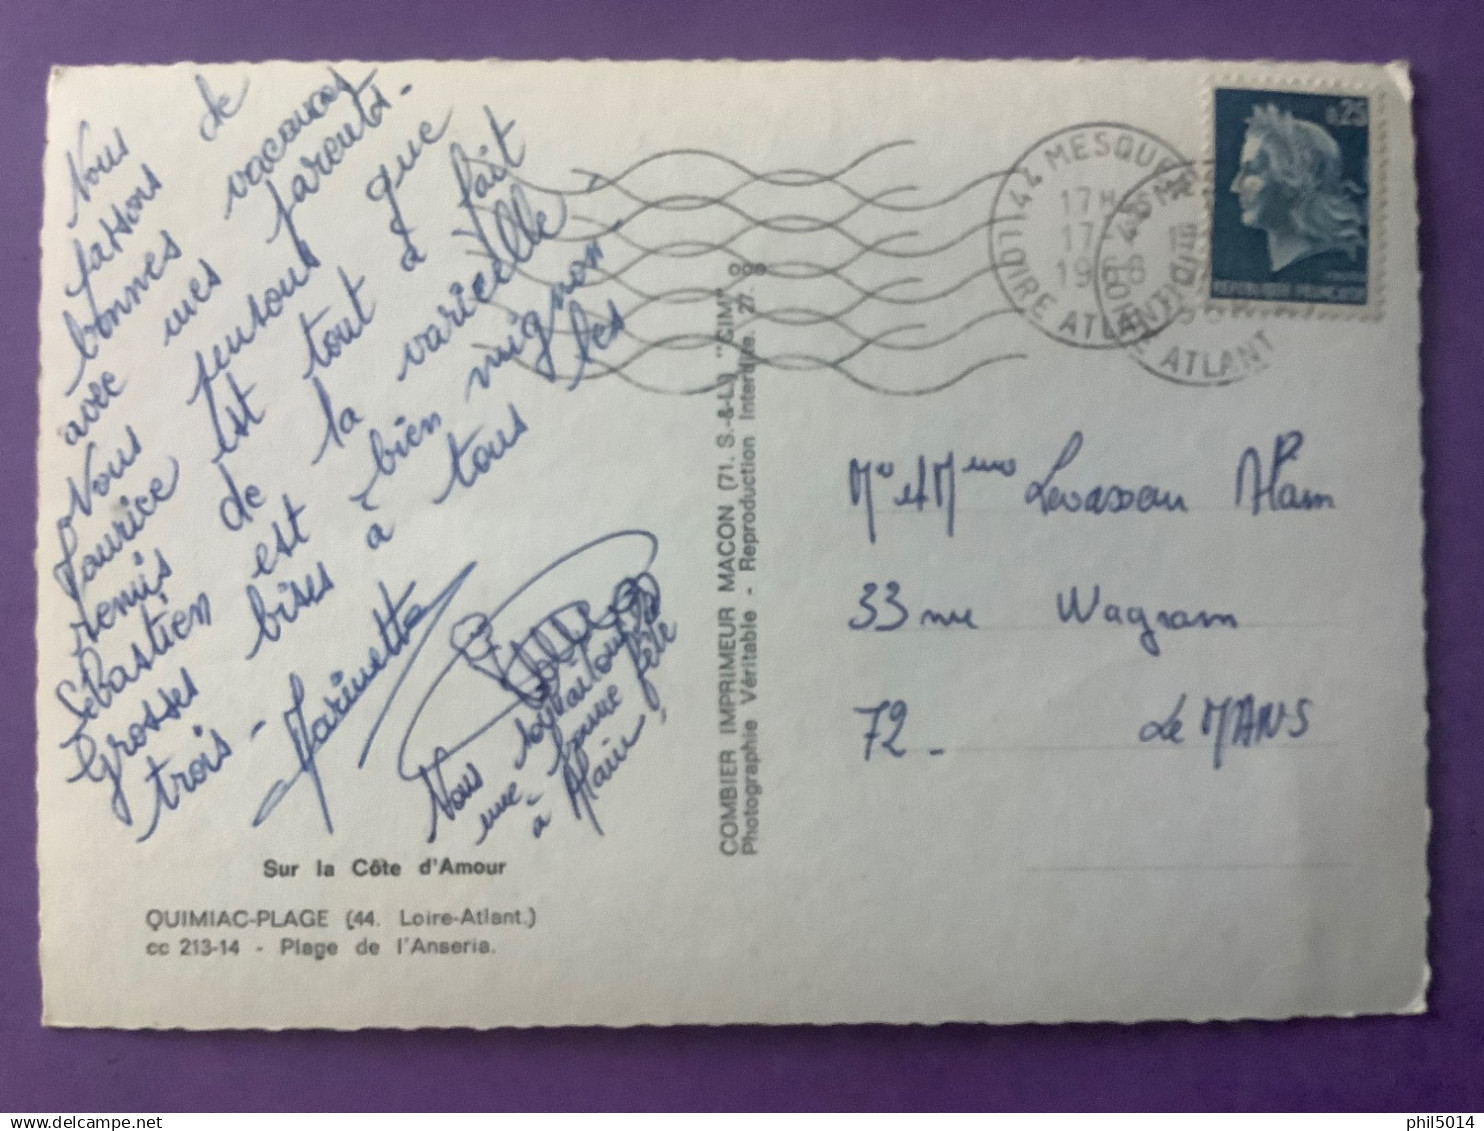 Nous passons de
bonnes vacances
avec mes parents.
Nous pensons que
Maurice est tout à fait
remis de la varicelle
Sébastien est bien mignon.
Grosses bises à tous les
trois - Marinette
Nous souhaitons
une bonne fête
à Alain !
Sur la Côte d'Amour
QUIMIAC-PLAGE (44. Loire-Atlant.)
cc 213-14 - Plage de l'Anseria.
COMBIER IMPRIMEUR MACON (71. S.-&-L.) "CIM"
Photographie Véritable - Reproduction Interdite. 27.
44 MESQUER
17H
17
1968
LOIRE ATLANTIQUE
0,25
REPUBLIQUE FRANÇAISE
Mr et Mme Levasseur Alain
33 rue Wagram
72 - Le MANS
phil5014